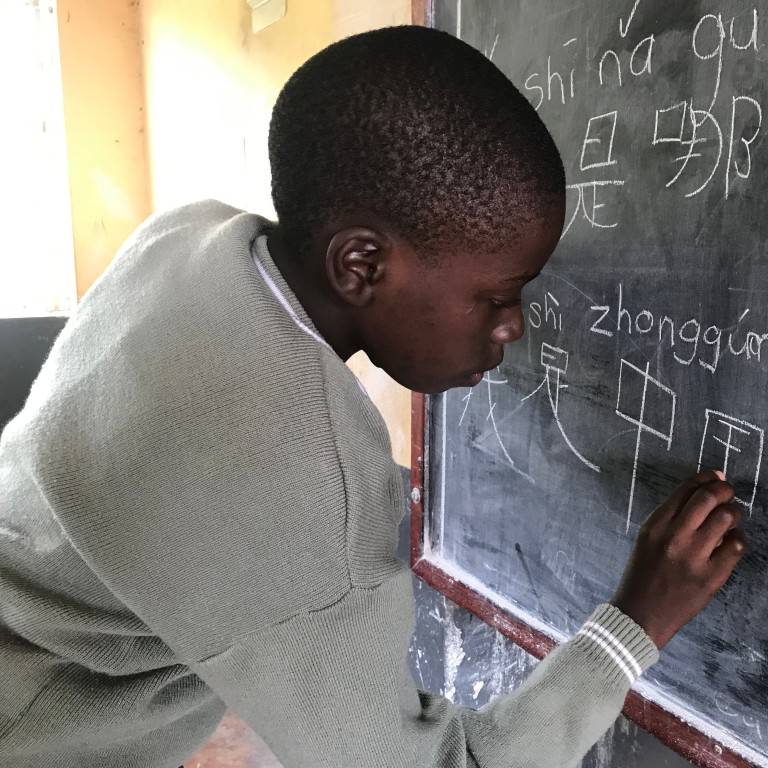 shī nǎ gu
是 哪
shì zhongguó
我 是 中 国